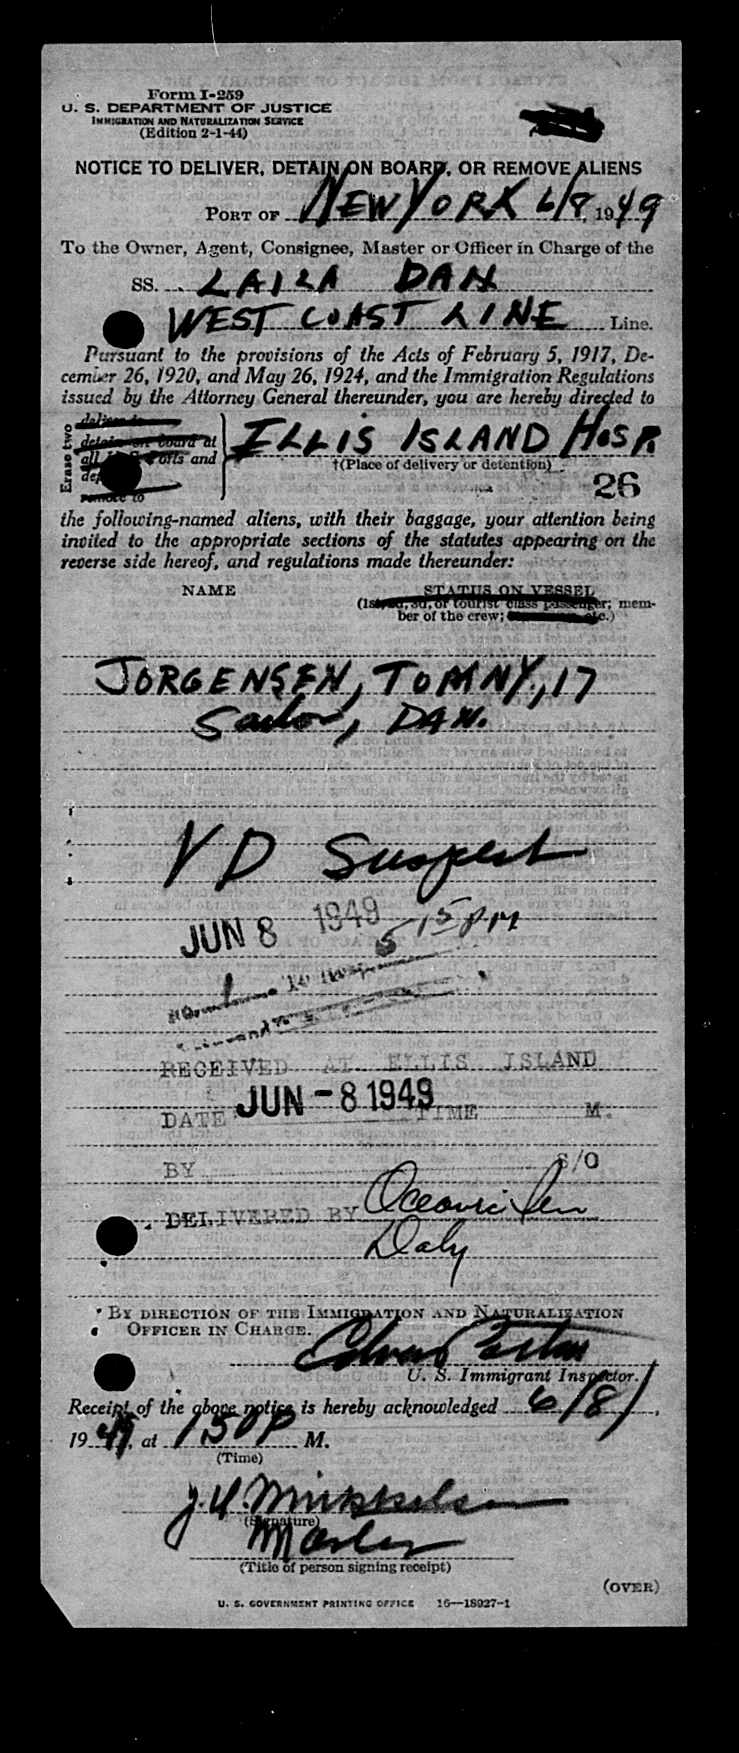 Form I-259
U. S. DEPARTMENT OF JUSTICE
IMMIGRATION AND NATURALIZATION SERVICE
(Edition 2-1-44)
NOTICE TO DELIVER, DETAIN ON BOARD, OR REMOVE ALIENS
PORT OF NEW YORK 6/8, 1949
To the Owner, Agent, Consignee, Master or Officer in Charge of the
SS. LAILA DAN
WEST COAST LINE Line.
Pursuant to the provisions of the Acts of February 5, 1917, De-
cember 26, 1920, and May 26, 1924, and the Immigration Regulations
issued by the Attorney General thereunder, you are hereby directed to
Erase two
deliver to
detain on board at
all and
remove to
ELLIS ISLAND HOSP.
†(Place of delivery or detention)
26
the following-named aliens, with their baggage, your attention being
invited to the appropriate sections of the statutes appearing on the
reverse side hereof, and regulations made thereunder:
NAME STATUS ON VESSEL
(1st, 2d, 3d, or tourist class passenger; mem-
ber of the crew; etc.)
JORGENSEN, TOMMY, 17
Sailor, DAN.
VD Suspect
JUN 8 1949 5 15 PM
RECEIVED AT ELLIS ISLAND
DATE JUN -8 1949 TIME M.
BY S/O
DELIVERED BY Oceanic
Daly
BY DIRECTION OF THE IMMIGRATION AND NATURALIZATION
OFFICER IN CHARGE.
U. S. Immigrant Inspector.
Receipt of the above notice is hereby acknowledged 6/8/,
1949, at 150 P M.
(Time)
J. Mikkelsen
(Signature)
Master
(Title of person signing receipt)
(OVER)
U. S. GOVERNMENT PRINTING OFFICE 16—18927-1